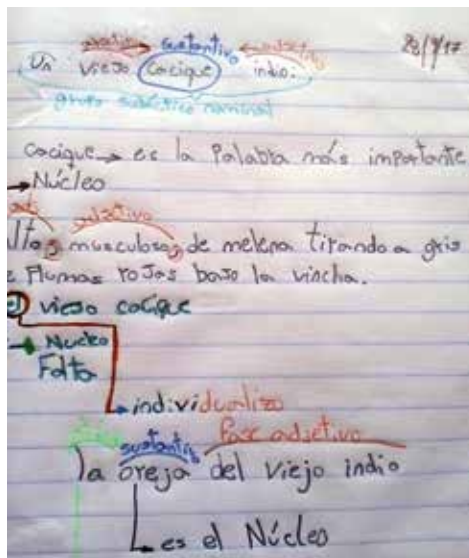 adjetivo sustantivo adjetivo
28/7/17
Un viejo cacique indio.
grupo sintáctico nominal
cacique → es la Palabra más importante
→ Núcleo
adjetivo
musculoso, de melena tirando a gris
Plumas rojas bajo la vincha.
viejo cacique
→ Nucleo
Falta
individualizo
sustantivo frase adjetivo
la oreja del viejo indio
es el Núcleo